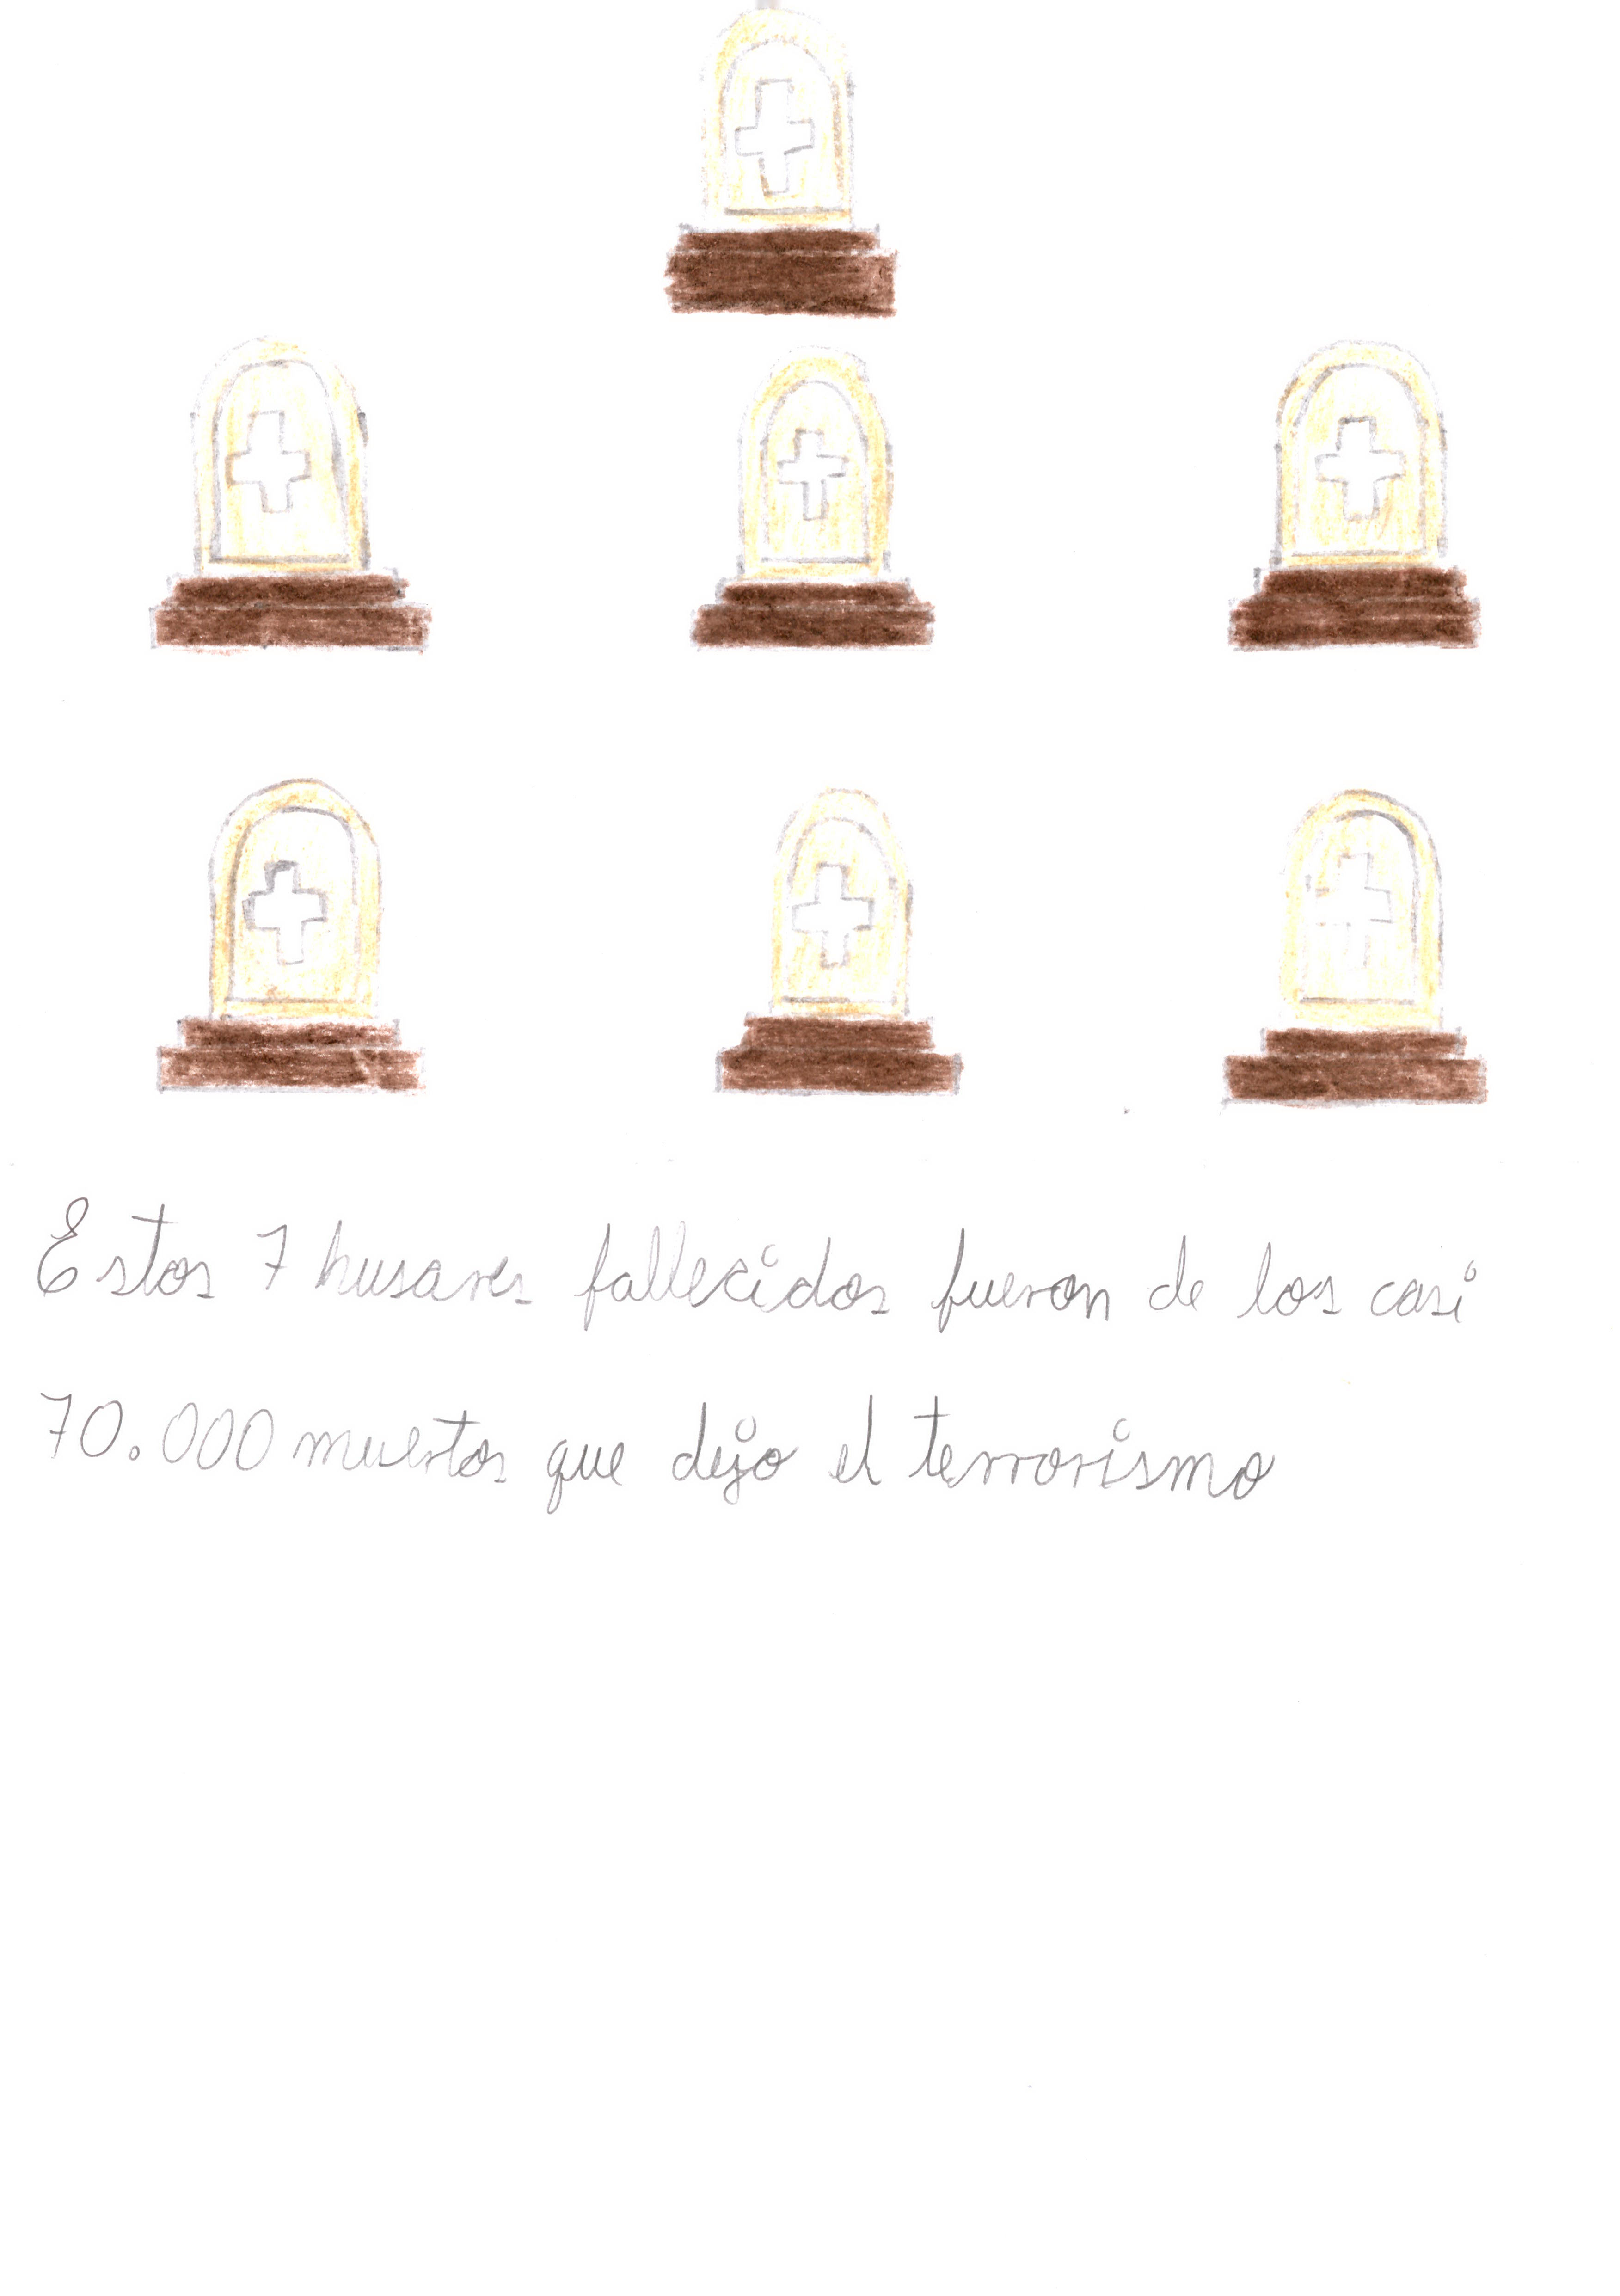 Estos 7 husares fallecidos fueron de los casi
70.000 muertos que dejo el terrorismo